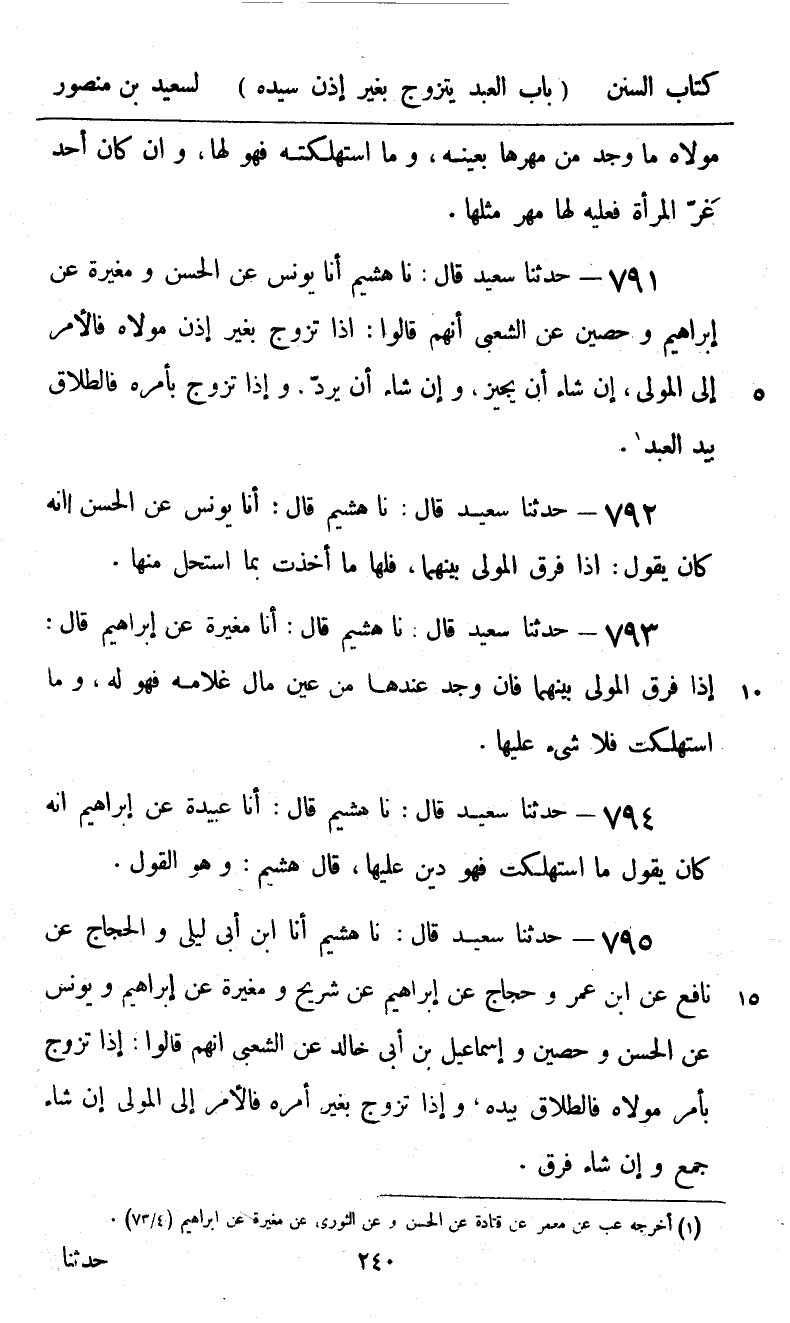 كتاب السنن ( باب العبد يتزوج بغير إذن سيده ) لسعيد بن منصور
مولاه ما وجد من مهرها بعينـه، و ما استهلـكتـه فهو لها، و ان كان أحد
غَرّ المرأة فعليه لها مهر مثلها .
٧٩١ – حدثنا سعيد قال: نا هشيم أنا يونس عن الحسن و مغيرة عن
إبراهيم و حصين عن الشعبى أنهم قالوا: اذا تزوج بغير إذن مولاه فالأمر
إلى المولى، إن شاء أن يجيز، و إن شاء أن يردّ. و إذا تزوج بأمره فالطلاق
٥
بيد العبد١ .
٧٩٢ – حدثنا سعيـد قال: نا هشيم قال: أنا يونس عن الحسن انه
كان يقول: اذا فرق المولى بينهما، فلها ما أخذت بما استحل منها .
٧٩٣ – حدثنا سعيد قال: نا هشيم قال: أنا مغيرة عن إبراهيم قال:
إذا فرق المولى بينهما فان وجد عندهـا من عين مال غلامـه فهو له، و ما
١٠
استهلـكت فلا شىء عليها .
٧٩٤ – حدثنا سعيـد قال: نا هشيم قال: أنا عبيدة عن إبراهيم انه
كان يقول ما استهلـكت فهو دين عليها، قال هشيم: و هو القول .
٧٩٥ – حدثنا سعيـد قال: نا هشيم أنا ابن أبى ليلى و الحجاج عن
نافع عن ابن عمر و حجاج عن إبراهيم عن شريح و مغيرة عن إبراهيم و يونس
١٥
عن الحسن و حصين و إسماعيل بن أبى خالد عن الشعبى انهم قالوا: إذا تزوج
بأمر مولاه فالطلاق بيده، و إذا تزوج بغير أمره فالأمر إلى المولى إن شاء
جمع و إن شاء فرق .
(١) أخرجه عب عن معمر عن قتادة عن الحسن و عن الثورى عن مغيرة عن ابراهيم (٧٣/٤) .
٢٤٠
حدثنا